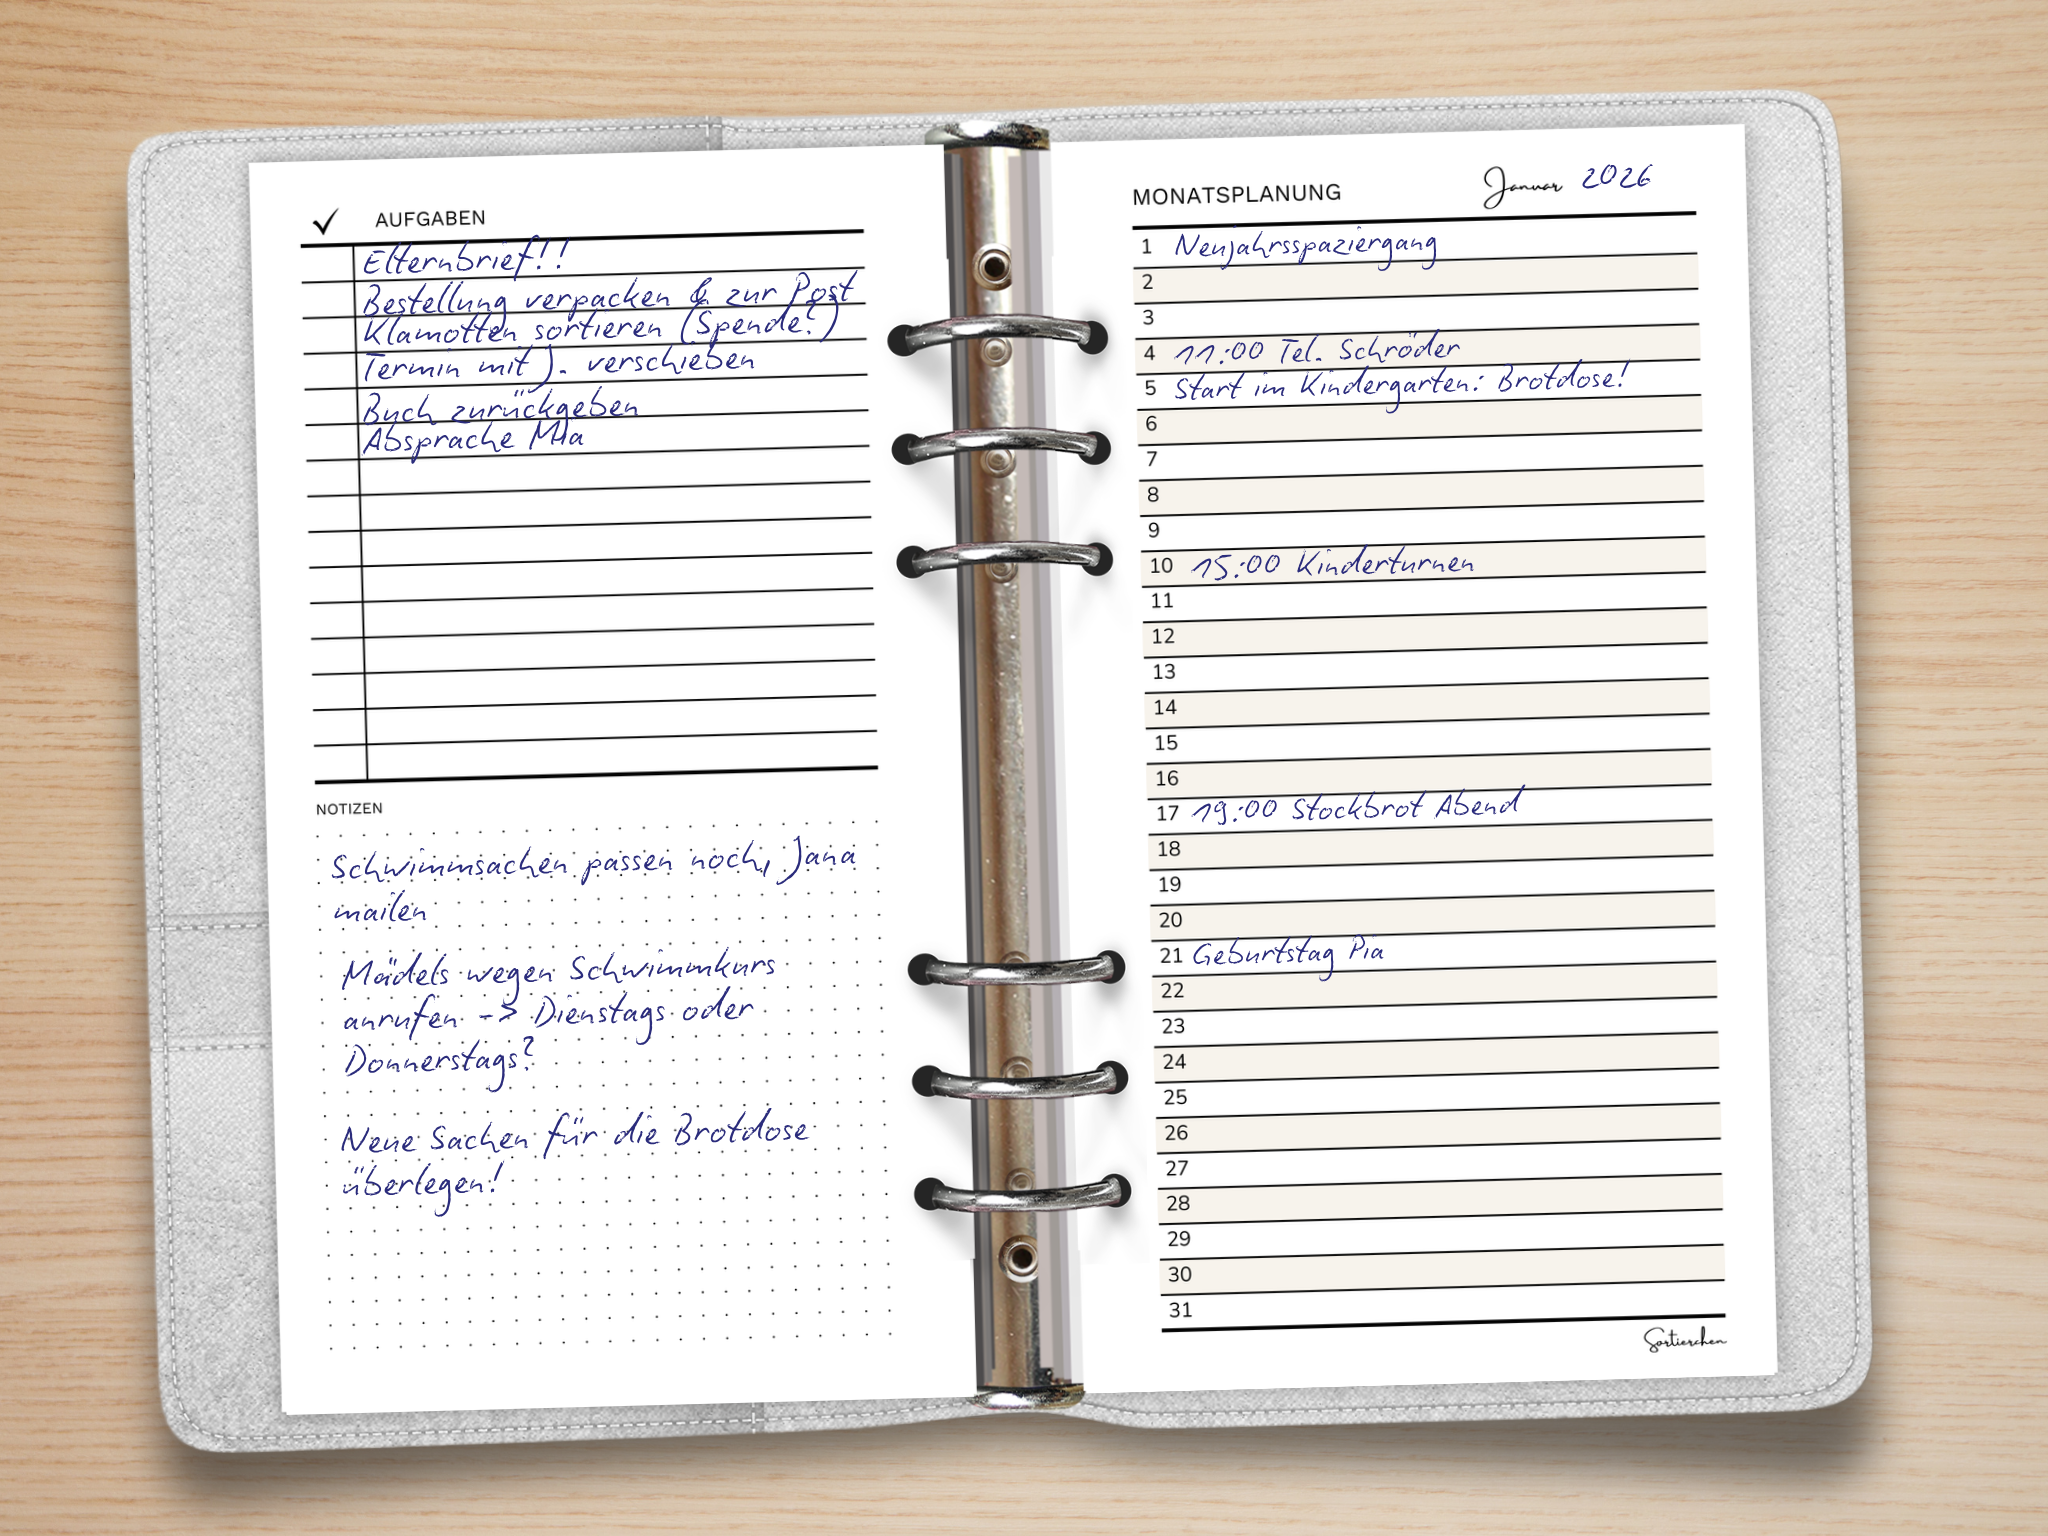 ✓ AUFGABEN
Elternbrief!!
Bestellung verpacken & zur Post
Klamotten sortieren (Spende?)
Termin mit J. verschieben
Buch zurückgeben
Absprache Mia
NOTIZEN
Schwimmsachen passen noch, Jana
mailen
Mädels wegen Schwimmkurs
anrufen -> Dienstags oder
Donnerstags?
Neue Sachen für die Brotdose
überlegen!
MONATSPLANUNG Januar 2026
1 Neujahrsspaziergang
2
3
4 11:00 Tel. Schröder
5 Start im Kindergarten: Brotdose!
6
7
8
9
10 15:00 Kinderturnen
11
12
13
14
15
16
17 19:00 Stockbrot Abend
18
19
20
21 Geburtstag Pia
22
23
24
25
26
27
28
29
30
31
Sortierchen